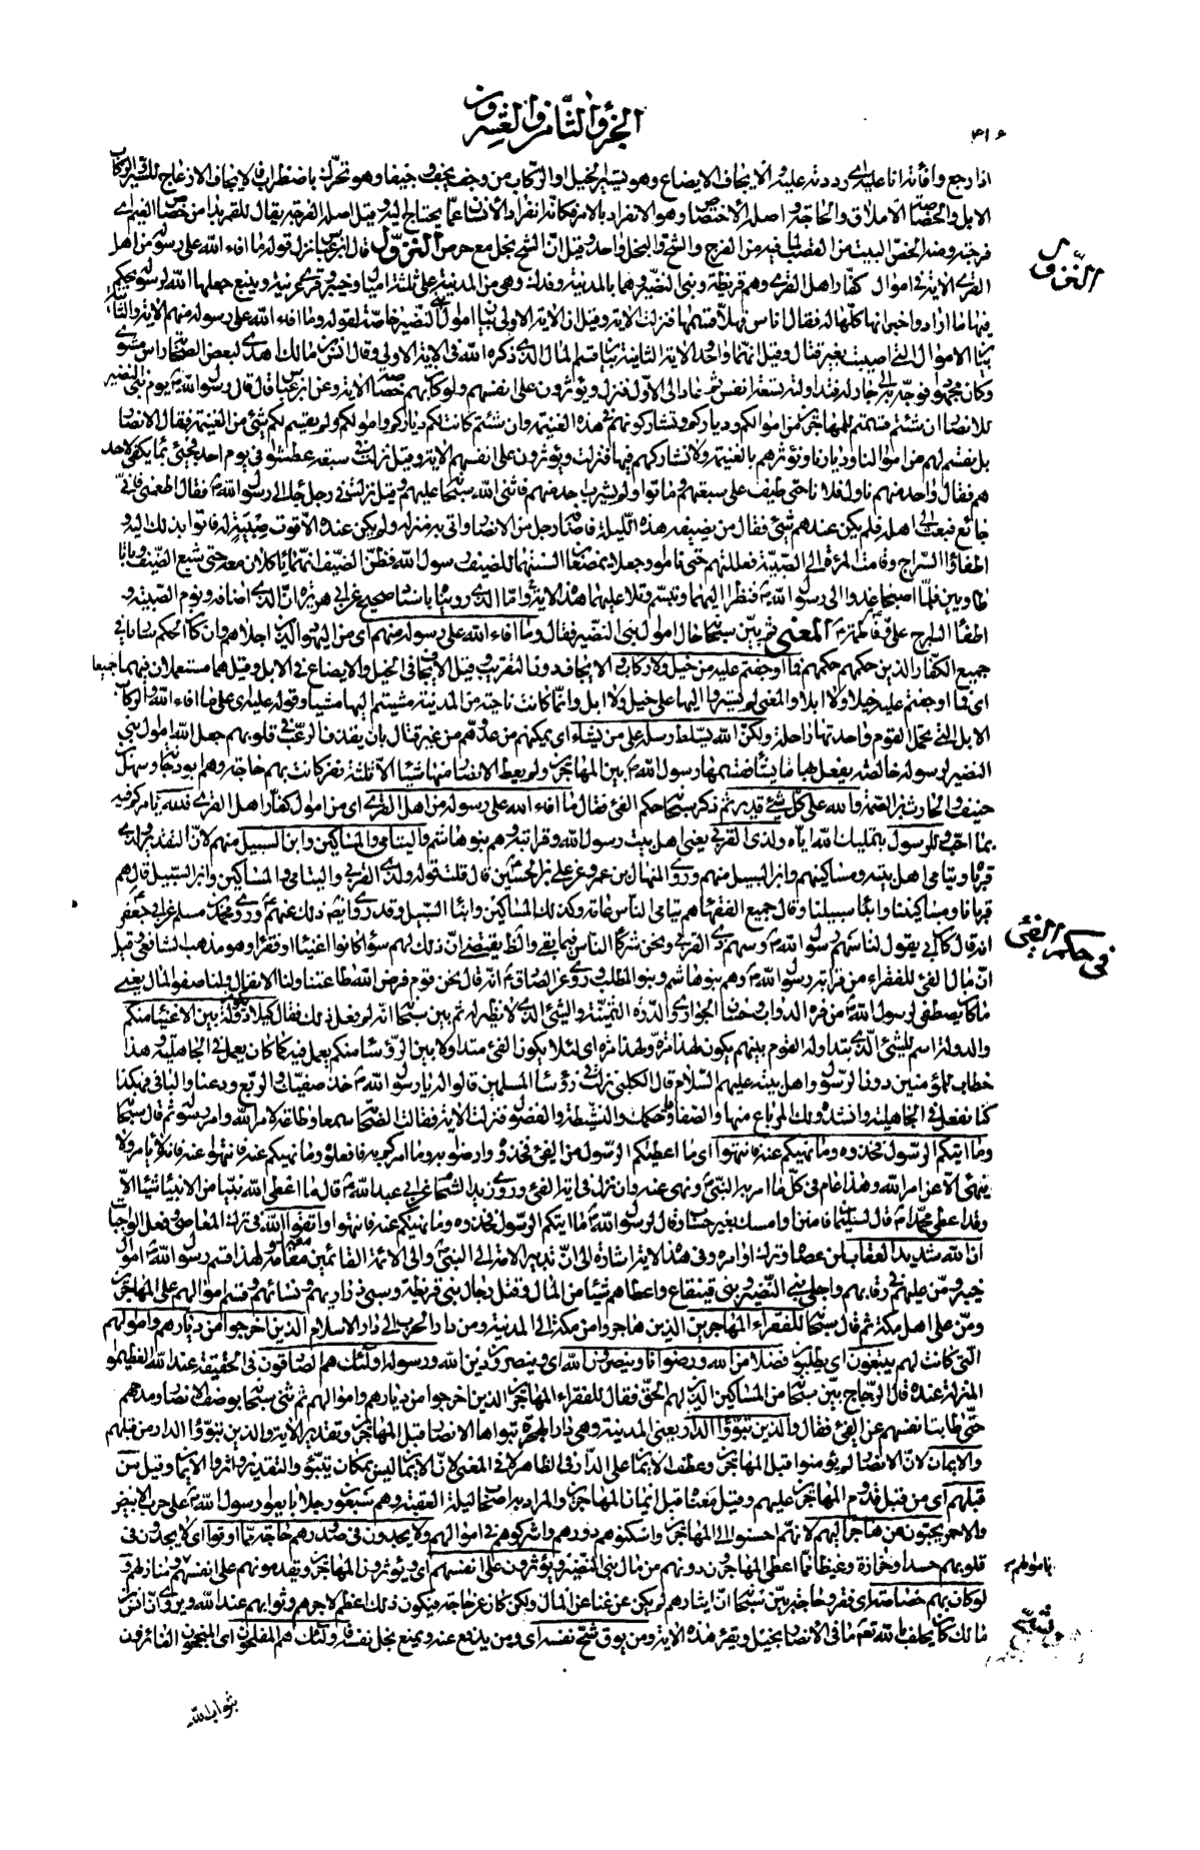 الجزؤ الثامن والعشرون
۴۱۶
اذا رجع وافأته انا عليه اى رددته عليه والايجاف الايضاع وهو تسيير الخيل او الركاب من وجف يجف وجيفا وهو تحرك باضطراب فالايجاف الازعاج للسير والركاب
الابل والخصاصة الاملاق والحاجة واصله الاختصاص وهو الانفراد بالامر فكانه انفراد الانسان عما يحتاج اليه وقيل اصله الفرجة يقال للقمر بدا من خصاص الغيم اى
فرجته ومنه الخص البيت من القصب لما فيه من الفرج والشح والبخل واحد وقيل ان الشح بخل مع حرص النزول قال ابن عباس نزل قوله ما افاء الله على رسوله من اهل
النزول
القرى الاية فى اموال كفار اهل القرى وهم قريظة وبنى النضير وهما بالمدينة وفدك وهى من المدينة على ثلثة اميال وخيبر وقرى عرينة وينبع جعلها الله لرسوله يحكم
فيها ما اراد واخبر انها كلها له فقال اناس فهلا قسمها فنزلت الاية وقيل ان الاية الاولى بيان اموال بنى النضير خاصة لقوله وما افاء الله على رسوله منهم الاية والثانية
بيان الاموال التى اصيبت بغير قتال وقيل انهما واحد والاية الثانية بيان قسم المال الذى ذكره الله فى الاية الاولى وقال انس بن مالك اهدى لبعض الصحابة راس مشوى
وكان مجهودا فوجه به الى جار له فتداولته تسعة انفس ثم عاد الى الاول فنزل ويؤثرون على انفسهم ولو كان بهم خصاصة الاية وعن ابن عباس قال قال رسول الله ص يوم بنى النضير
للانصار ان شئتم قسمتم للمهاجرين من اموالكم ودياركم وتشاركونهم فى هذه الغنيمة وان شئتم كانت لكم دياركم واموالكم ولم يقسم لكم شئ من الغنيمة فقال الانصار
بل نقسم لهم من اموالنا وديارنا ونؤثرهم بالغنيمة ولا نشاركهم فيها فنزلت ويؤثرون على انفسهم الاية وقيل نزلت فى سبعة عطشوا فى يوم احد فجئ بماء يكفى لاحد
هم فقال واحد منهم ناول فلانا حتى طيف على سبعتهم وماتوا ولم يشرب احد منهم فاثنى الله سبحانه عليهم وقيل نزلت فى رجل جاء الى رسول الله ص فقال اطعمنى فانى
جائع فبعث الى اهله فلم يكن عندهم شئ فقال من يضيفه هذه الليلة فاضافه رجل من الانصار واتى به منزله ولم يكن عنده الا قوت صبية له فاتوا بذلك اليه و
اطفاؤا السراج وقامت المرءة الى الصبية فعللتهم حتى ناموا وجعلا يمضغان السنتهما للضيف رسول الله فظن الضيف انهما ياكلان معه حتى شبع الضيف وباتا
طاويين فلما اصبحا غدوا الى رسول الله ص فنظر اليهما وتبسم وتلا عليهما هذه الاية واما الذى رويناه باسناد صحيح عن ابى هريرة ان الذى اضافه ونوم الصبية و
اطفأ السراج على وفاطمة ع المعنى ثم بين سبحانه حال اموال بنى النضير فقال وما افاء الله على رسوله منهم اى من اليهود الذين اجلاهم وان كان الحكم ساريا فى
جميع الكفار الذين حكمهم حكمهم فما اوجفتم عليه من خيل ولا ركاب فى الايجاف دون التقريب وقيل الايجاف فى الخيل والايضاع فى الابل وقيل هما مستعملان فيهما جميعا
اى فما اوجفتم عليه خيلا ولا ابلا والمعنى لم تسيروا اليها على خيل ولا ابل وانما كانت ناحية من المدينة مشيتم اليها مشيا وقوله عليه اى على ما افاء الله والركاب
الابل التى تحمل القوم واحدتها راحلة ولكن الله يسلط رسله على من يشاء اى يمكنهم من عدوهم من غير قتال بان يقذف الرعب فى قلوبهم جعل الله اموال بنى
النضير لرسوله خالصة يفعل بها ما يشاء فقسمها رسول الله ص بين المهاجرين ولم يعط الانصار منها شيئا الا ثلثة نفر كانت بهم حاجة وهم ابو دجانة وسهل بن
حنيف والحارث بن الصمة والله على كل شئ قدير ثم ذكر سبحانه حكم الفئ فقال ما افاء الله على رسوله من اهل القرى اى من اموال كفار اهل القرى فلله يامركم فيه
بما احب وللرسول بتمليك الله اياه ولذى القربى يعنى اهل بيت رسول الله وقرابته وهم بنو هاشم واليتامى والمساكين وابن السبيل منهم لان التقدير ولذى
قرباه ويتامى اهل بيته ومساكينهم وابن السبيل منهم وروى المنهال بن عمرو عن على بن الحسين قال قلت قوله ولذى القربى واليتامى والمساكين وابن السبيل قال هم
قربانا ومساكيننا وابناء سبيلنا وقال جميع الفقهاء هم يتامى الناس عامة وكذلك المساكين وابناء السبيل وقد روى ايضا ذلك عنهم ع وروى محمد بن مسلم عن ابى جعفر
فى حكم الفئ
انه قال كان ابى يقول لنا سهم رسول الله ص وسهم ذى القربى ونحن شركاء الناس فيما بقى والظاهر يقتضى ان ذلك لهم سواء كانوا اغنياء او فقراء وهو مذهب الشافعى وقيل
ان مال الفئ للفقراء من قرابة رسول الله ص وهم بنو هاشم وبنو المطلب وروى عن الصادق ع انه قال نحن قوم فرض الله طاعتنا ولنا الانفال ولنا صفو المال يعنى
ما كان يصطفى لرسول الله ص من فره الدواب وحسان الجوارى والدرة الثمينة والشئ الذى لا نظير له ثم بين سبحانه انه لم فعل ذلك فقال كيلا يكون دولة بين الاغنياء منكم
والدولة اسم للشئ الذى يتداوله القوم بينهم يكون لهذا مرة ولهذا مرة اى لئلا يكون الفئ متداولا بين الرؤساء منكم يعمل فيه كما كان يعمل فى الجاهلية وهذا
خطاب للمؤمنين دون الرسول واهل بيته عليهم السلام قال الكلبى نزلت فى رؤساء المسلمين قالوا له يا رسول الله ص خذ صفيك والربع ودعنا والباقى فهكذا
كنا نفعل فى الجاهلية وانشدوا لك المرباع منها والصفايا وحكمك والنشيطة والفضول فنزلت الاية فقالت الصحابة سمعا وطاعة لامر الله وامر رسوله ثم قال سبحانه
وما اتيكم الرسول فخذوه وما نهيكم عنه فانتهوا اى ما اعطيكم الرسول من الفئ فخذوه وارضوا به وما امركم به فافعلوه وما نهيكم عنه فانتهوا عنه فانه لا يامر ولا
ينهى الا عن امر الله وهذا عام فى كل ما امر به النبى ص ونهى عنه وان نزل فى اية الفئ وروى زيد الشحام عن ابى عبد الله ع قال ما اعطى الله نبيا من الانبياء شيئا الا
وقد اعطى محمدا ص قال لسليمان فامنن او امسك بغير حساب وقال لرسول الله ص ما اتيكم الرسول فخذوه وما نهيكم عنه فانتهوا واتقوا الله فى ترك المعاصى وفعل الواجبات
ان الله شديد العقاب لمن عصاه وترك اوامره وفى هذه الاية اشارة الى ان تدبير الامة الى النبى ص والى الائمة القائمين مقامه ولهذا قسم رسول الله ص اموال
خيبر ومن عليهم فى رقابهم واجلى بنى النضير وبنى قينقاع واعطاهم شيئا من المال وقتل رجال بنى قريظة وسبى ذراريهم ونسائهم وقسم اموالهم على المهاجرين
ومن على اهل مكة ثم قال سبحانه للفقراء المهاجرين الذين هاجروا من مكة الى المدينة ومن دار الحرب الى دار الاسلام الذين اخرجوا من ديارهم واموالهم
التى كانت لهم يبتغون اى يطلبون فضلا من الله ورضوانا وينصرون الله اى وينصرون دين الله ورسوله اولئك هم الصادقون فى الحقيقة عند الله العظيمو
المنزلة عنده قال الزجاج بين سبحانه من المساكين الذين لهم الحق فقال للفقراء المهاجرين الذين اخرجوا من ديارهم واموالهم ثم ثنى سبحانه بوصف الانصار ومدحهم
حتى طابت انفسهم عن الفئ فقال والذين تبوؤا الدار يعنى المدينة وهى دار الهجرة تبواها الانصار قبل المهاجرين وتقدير الاية والذين تبوؤا الدار من قبلهم
والايمان لان الانصار لم يؤمنوا قبل المهاجرين وعطف الايمان على الدار فى الظاهر لا فى المعنى لان الايمان ليس بمكان يتبوؤ والتقدير واثروا الايمان وقيل من
قبلهم اى من قبل قدوم المهاجرين عليهم وقيل معناه قبل ايمان المهاجرين والمراد به اصحاب ليلة العقبة وهم سبعون رجلا بايعوا رسول الله ص على حرب الابيض
والاحمر يحبون من هاجر اليهم لانهم احسنوا الى المهاجرين واسكنوهم دورهم واشركوهم فى اموالهم ولا يجدون فى صدورهم حاجة مما اوتوا اى لا يجدون فى
قلوبهم حسدا وحزازة وغيظا مما اعطى المهاجرون دونهم من مال بنى النضير ويؤثرون على انفسهم اى ويؤثرون المهاجرين ويقدمونهم على انفسهم ومنازلهم
باموالهم
لو كان بهم خصاصة اى فقر وحاجة بين سبحانه ان ايثارهم لم يكن عن غنا عن المال ولكن كان عن حاجة فيكون ذلك اعظم لاجرهم وثوابهم عند الله ويروى ان انس بن
مالك كان يحلف بالله تعالى ما فى الانصار بخيل ويقرء هذه الاية ومن يوق شح نفسه اى ومن يدفع عنه ويمنع بخل نفسه فاولئك هم المفلحون اى المنجحون الفائزون
بثواب الله